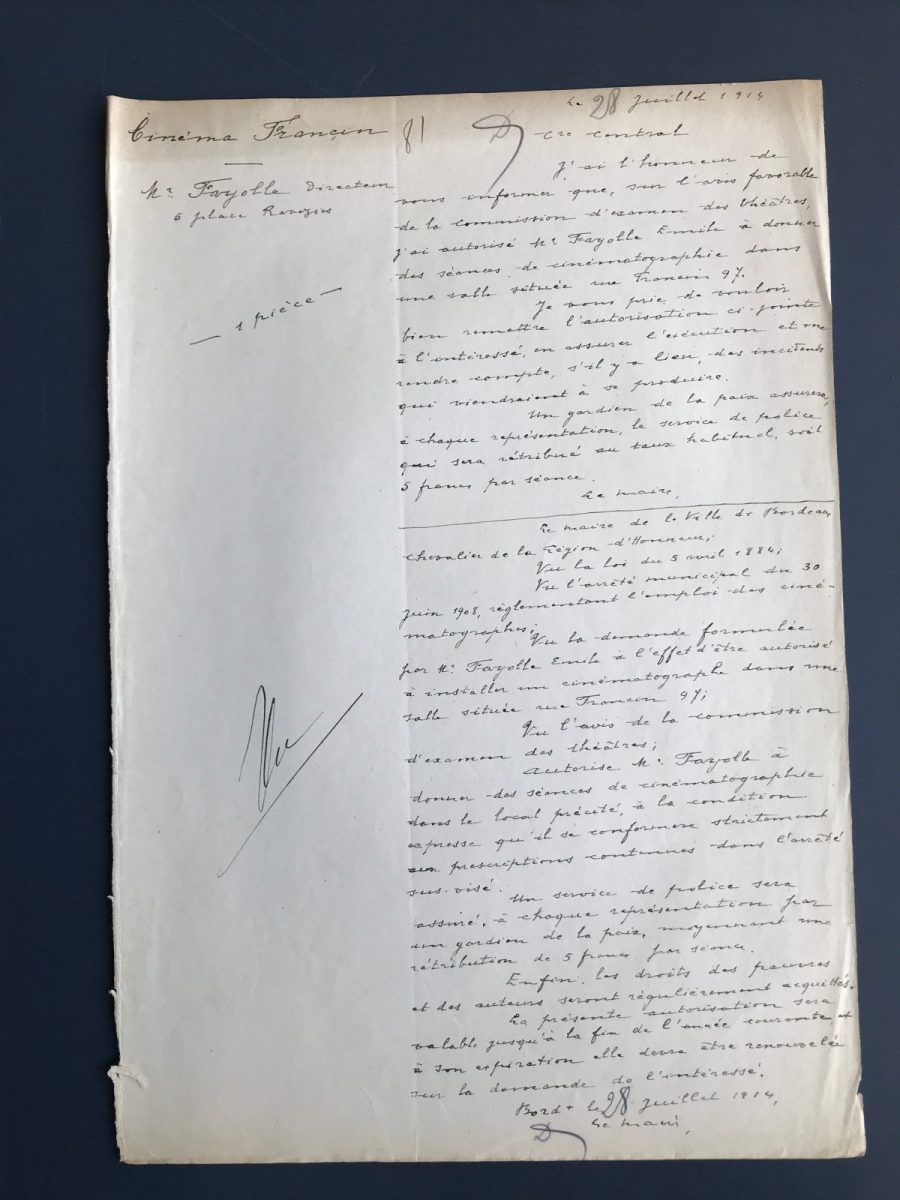 Le 28 Juillet 1914
Cinéma Françin
81
Cre central
Mr Fayolle Directeur
5 place Ravezies
- 1 pièce -
J'ai l'honneur de
vous informer que, sur l'avis favorable
de la commission d'examen des théâtres,
j'ai autorisé Mr Fayolle Emile à donner
des séances de cinématographie dans
une salle située rue Francin 97.
Je vous prie de vouloir
bien remettre l'autorisation ci-jointe
à l'intéressé, en assurer l'exécution et me
rendre compte, s'il y a lieu, des incidents
qui viendraient à se produire.
Un gardien de la paix assurera,
à chaque représentation, le service de police
qui sera rétribué au taux habituel, soit
5 francs par séance.
Le Maire,
Le Maire de la Ville de Bordeaux,
Chevalier de la Légion d'Honneur;
Vu la loi du 5 avril 1884;
Vu l'arrêté municipal du 30
Juin 1908, règlementant l'emploi des ciné-
matographes;
Vu la demande formulée
par Mr Fayolle Emile à l'effet d'être autorisé
à installer un cinématographe dans une
salle située rue Francin 97;
Vu l'avis de la commission
d'examen des théâtres;
Autorise Mr Fayolle à
donner des séances de cinématographie
dans le local précité, à la condition
expresse qu'il se conformera strictement
aux prescriptions contenues dans l'arrêté
sus-visé.
Vu
Un service de police sera
assuré, à chaque représentation par
un gardien de la paix, moyennant une
rétribution de 5 francs par séance.
Enfin, les droits des pauvres
et des auteurs seront régulièrement acquittés.
La présente autorisation sera
valable jusqu'à la fin de l'année courante et
à son expiration elle devra être renouvelée
sur la demande de l'intéressé.
Bordx le 28 Juillet 1914,
Le Maire,